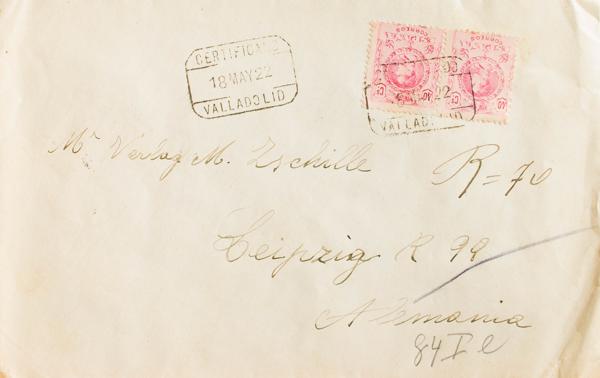 CERTIFICADO
18 MAY 22
VALLADOLID
CORREOS
40 CS
22
VALLADOLID
Mr Verlag M. Zschille
R = 70
Leipzig R 99
Alemania
84 I e